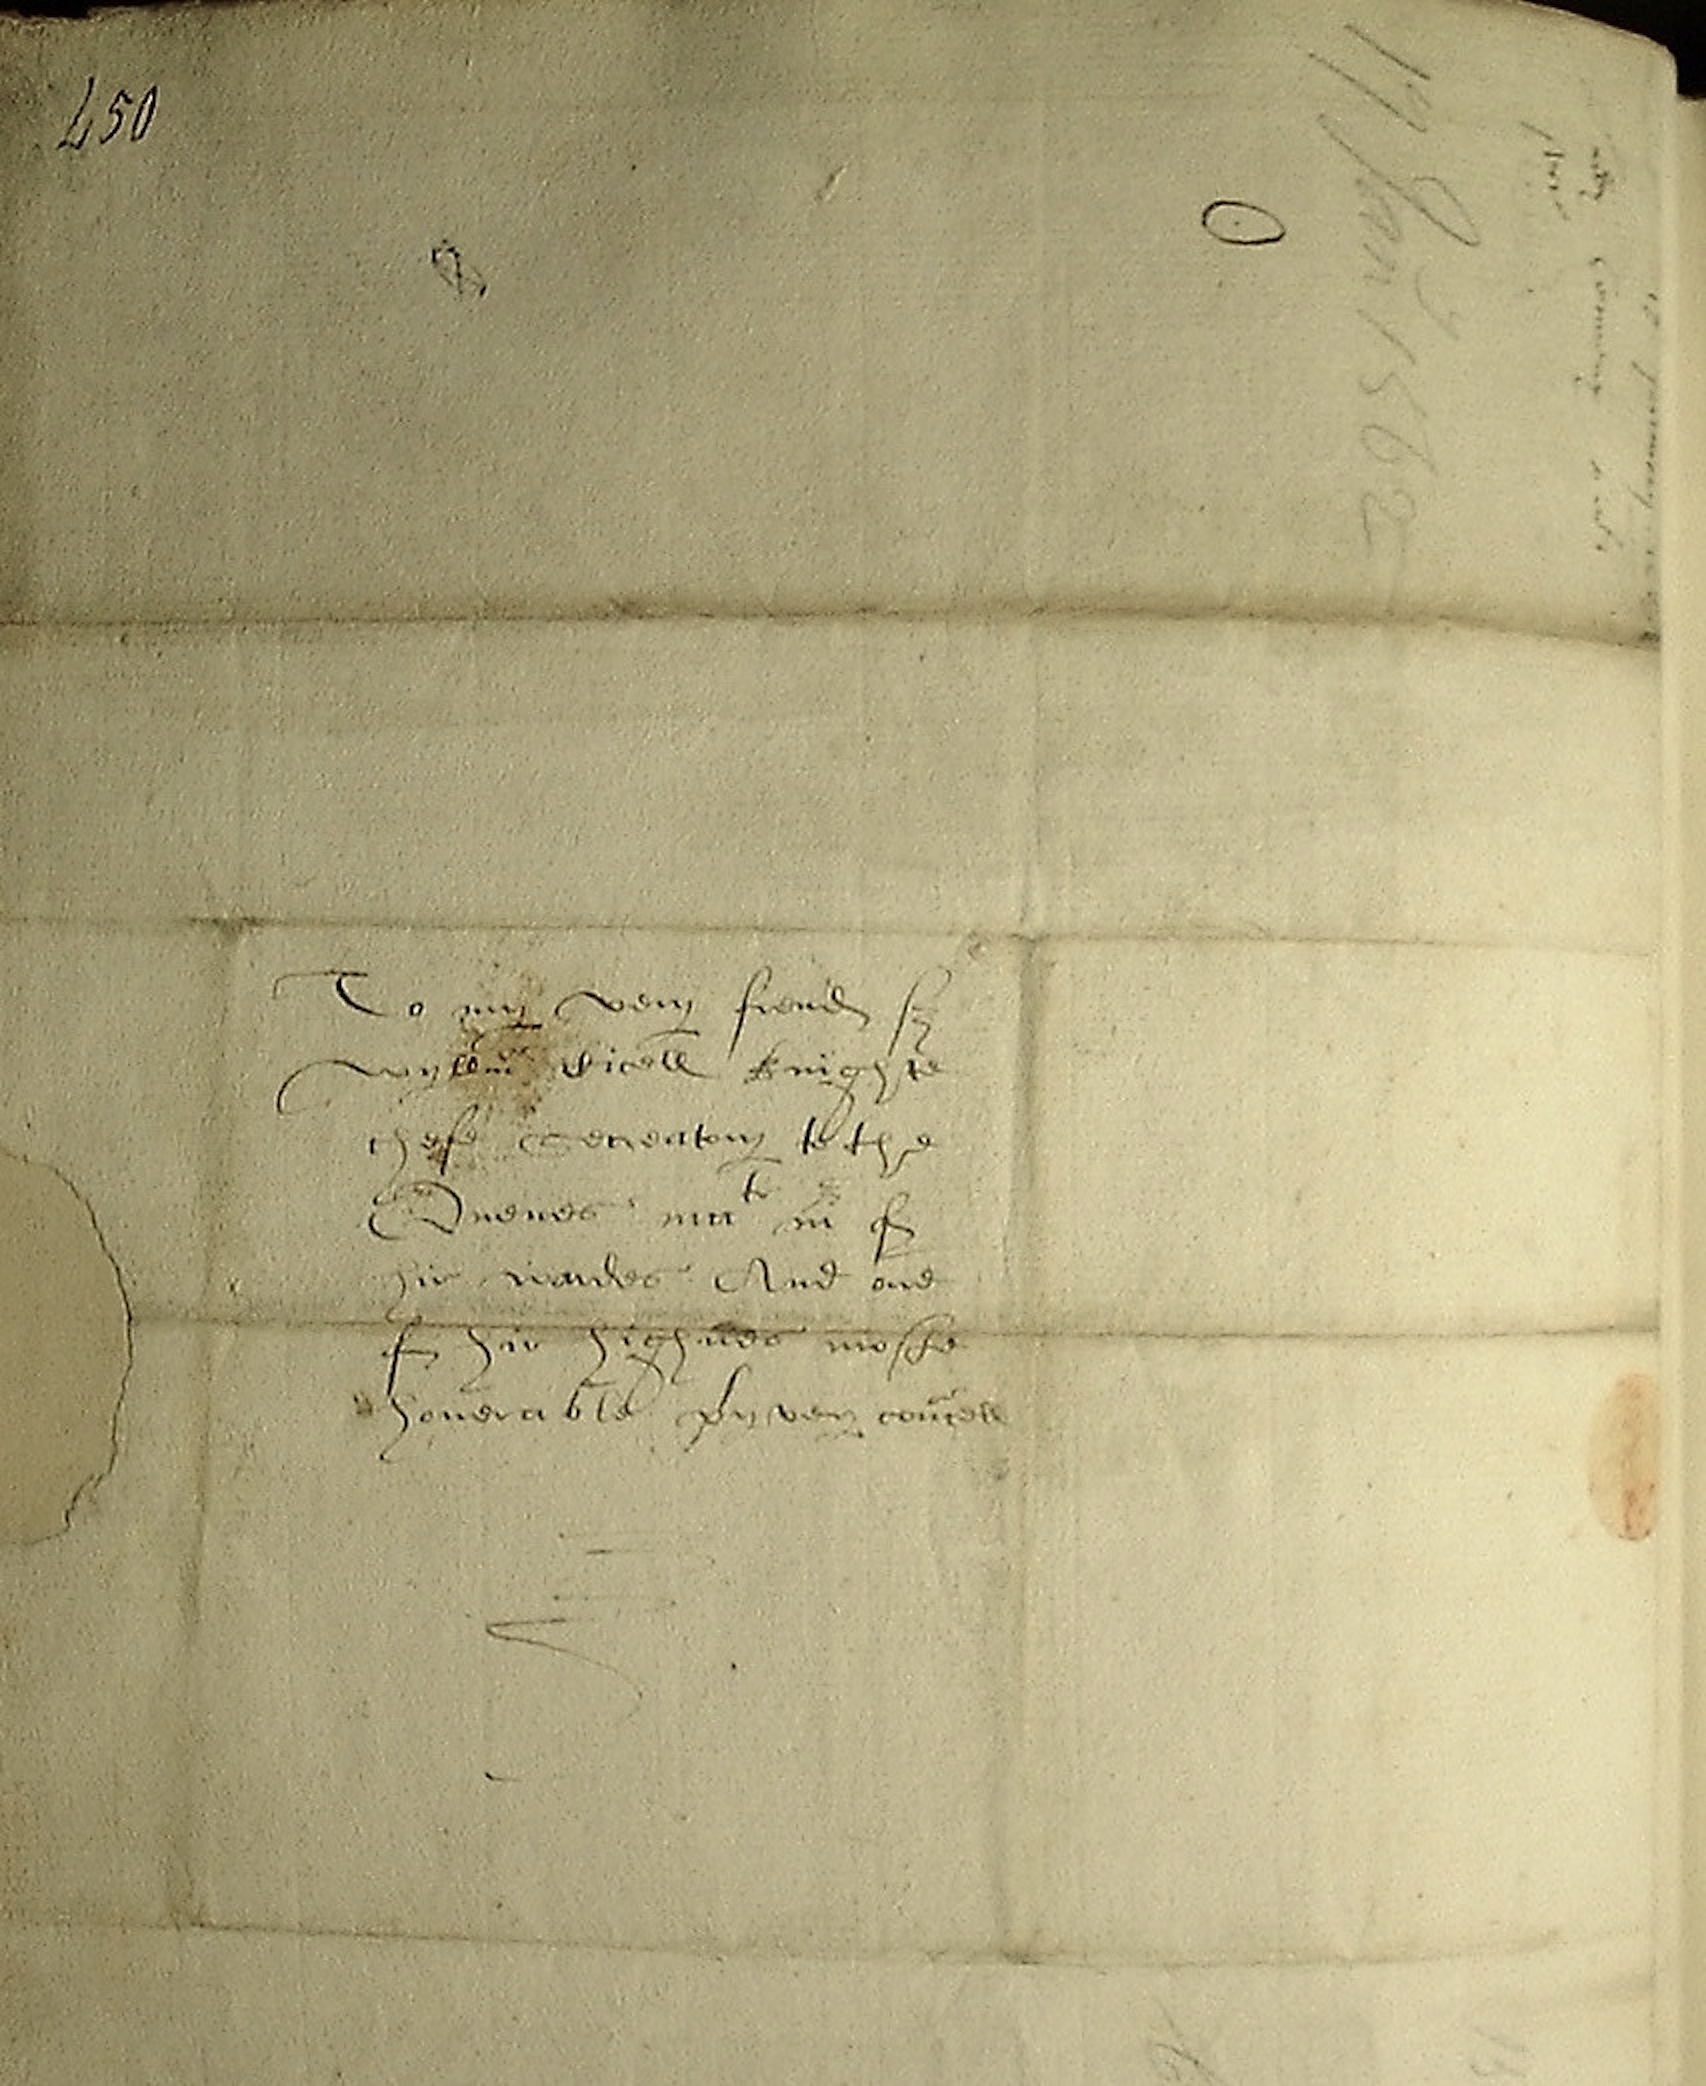 450
17 Jan 1562
To my very friend Sr
Wyllm Cicell knighte
chefe Secreatory to the
Quenes matie mr of
hir wardes And one
of hir highnes moste
honerable pryvey councell